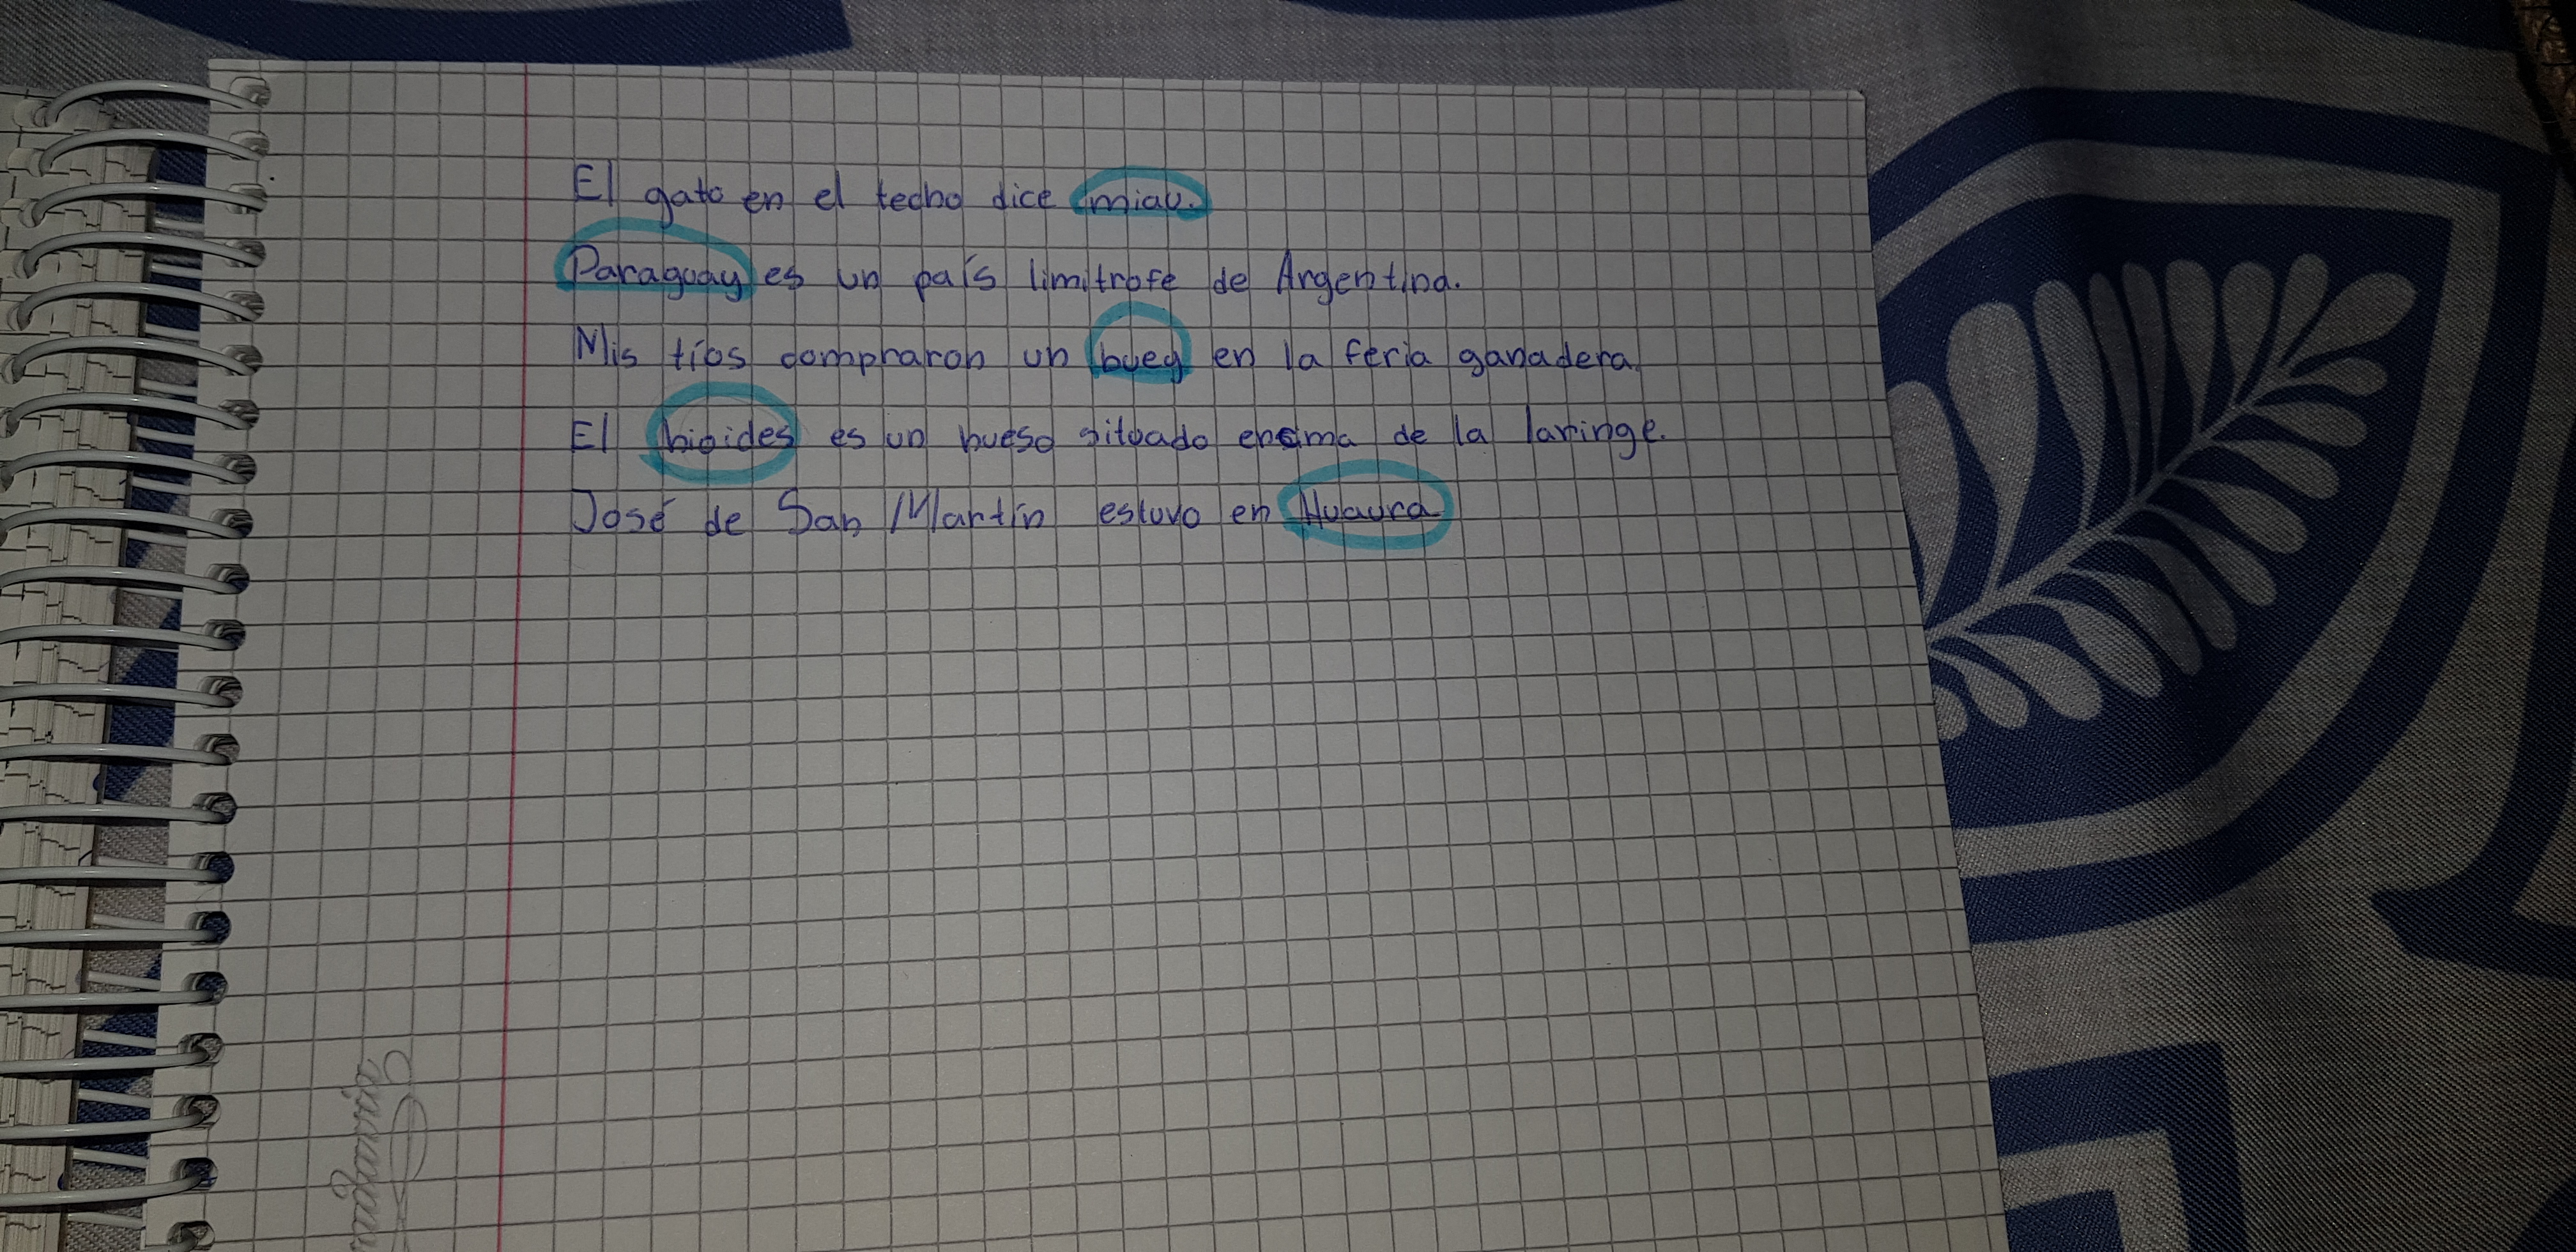 El gato en el techo dice miau.
Paraguay es un país limitrofe de Argentina.
Mis tíos compraron un buey en la feria ganadera.
El hioides es un hueso situado encima de la laringe.
José de San Martín estuvo en Huaura